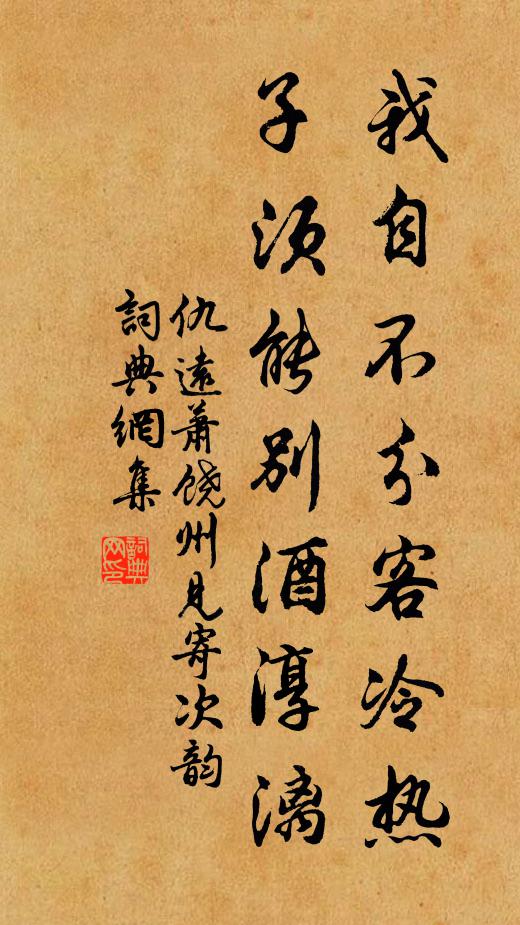 我自不分客冷热
子须能别酒淳漓
仇遠萧饶州见寄次韵
詞典網集
詞典網印